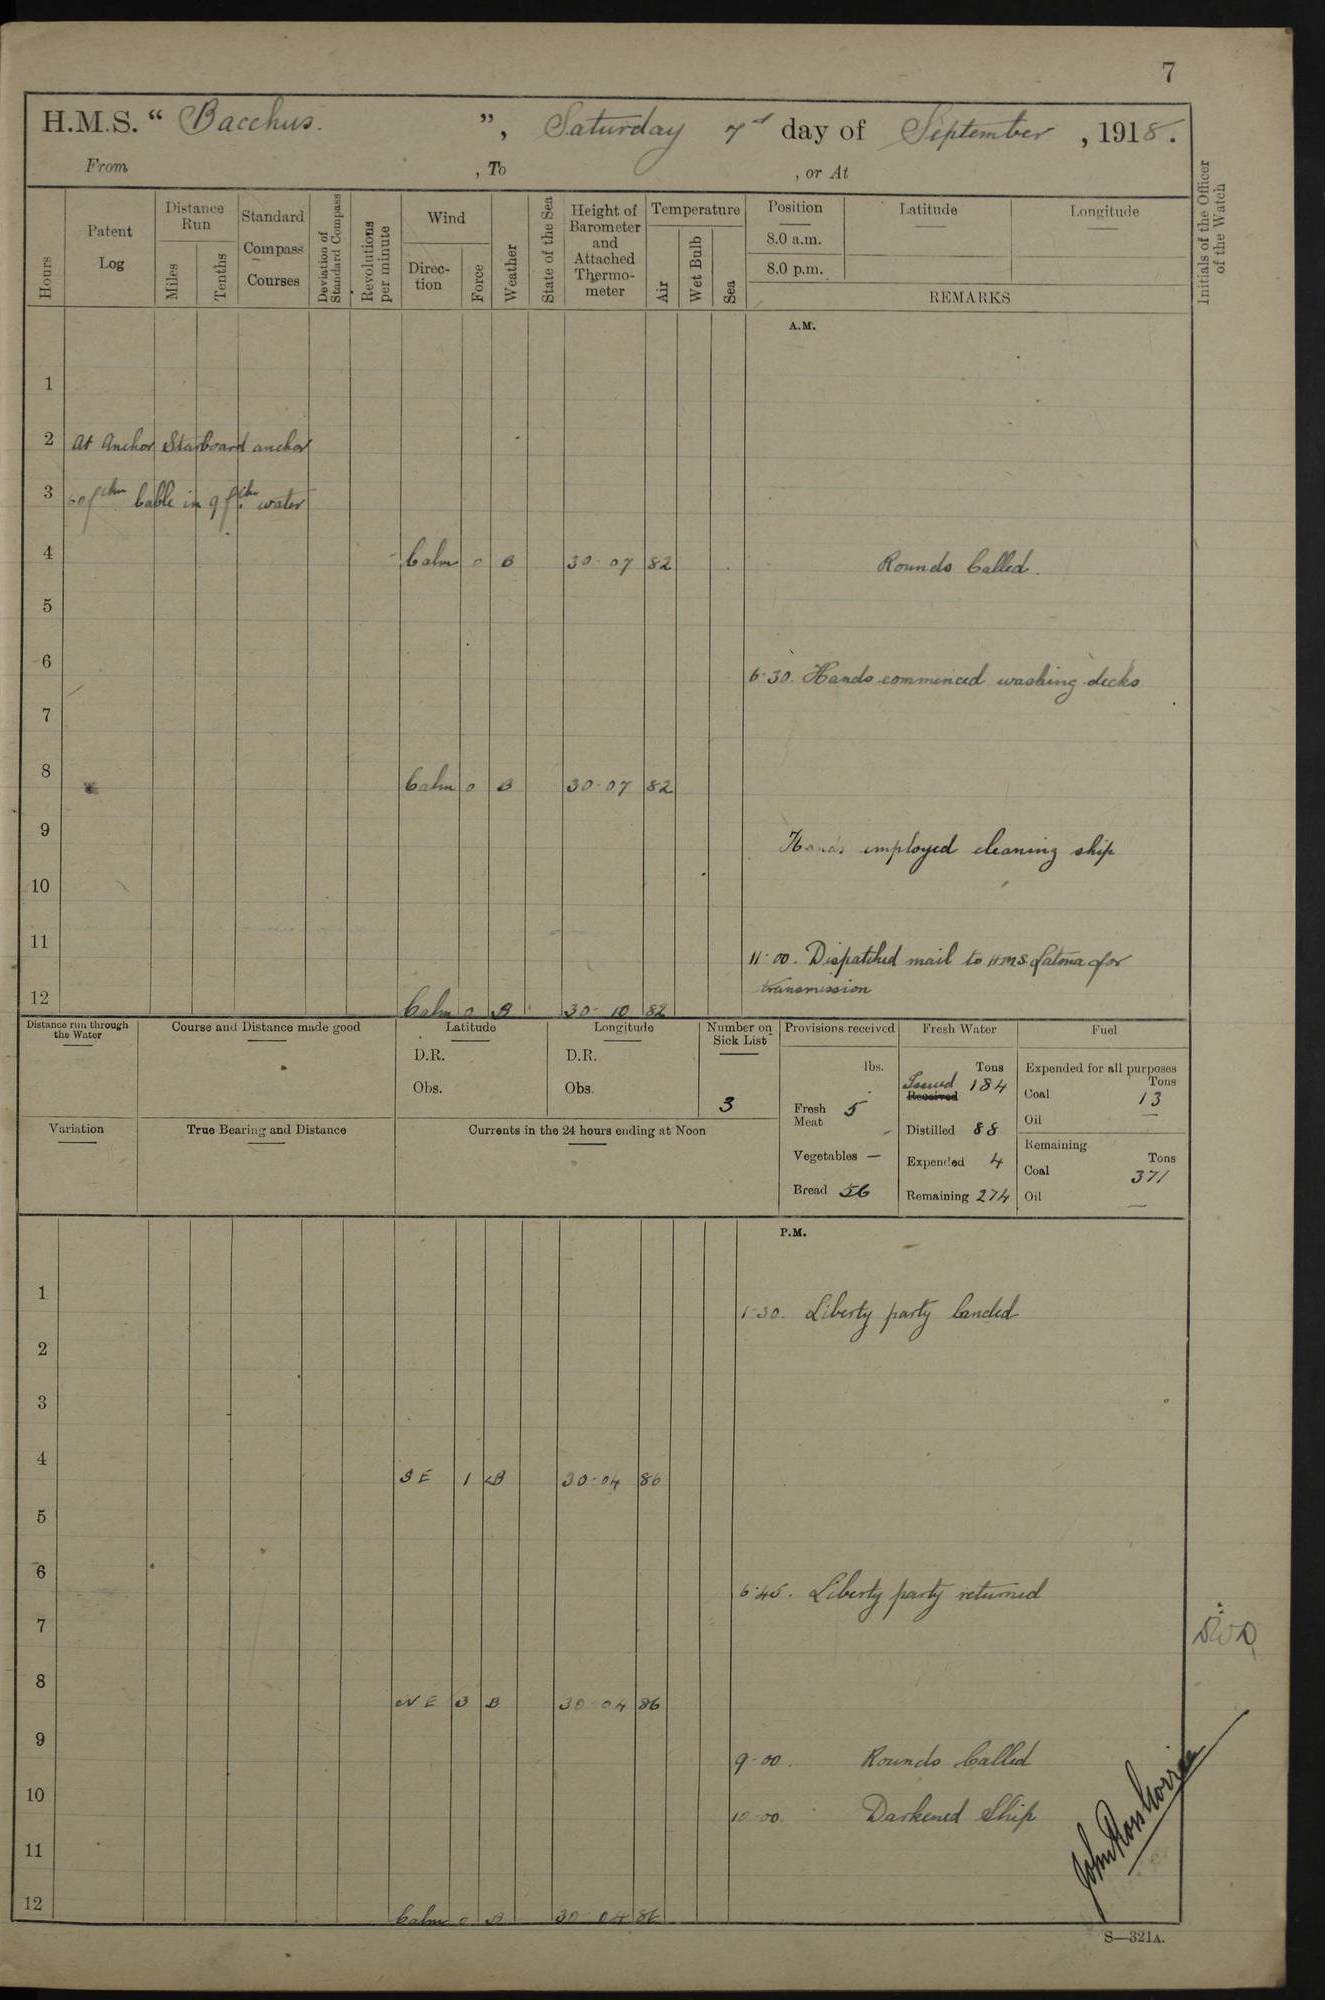 7
H.M.S. “ Bacchus. ”, Saturday 7th day of September, 1918.
From , To , or At
Hours
Patent Log
Distance Run
Miles
Tenths
Standard Compass Courses
Deviation of Standard Compass
Revolutions per minute
Wind
Direction
Force
Weather
State of the Sea
Height of Barometer and Attached Thermometer
Temperature
Air
Wet Bulb
Sea
Position
8.0 a.m.
8.0 p.m.
Latitude
Longitude
REMARKS
Initials of the Officer of the Watch
A.M.
1
2 At Anchor Starboard anchor
3 60 fthm Cable in 9 fthm water
4 Calm 0 B 30-07 82 Rounds Called.
5
6 6-30. Hands commenced washing decks
7
8 Calm 0 B 30-07 82
9 Hands employed cleaning ship
10
11 11-00. Dispatched mail to H.M.S. Latona for
transmission
12 Calm 0 B 30-10 82
Distance run through the Water
Course and Distance made good
Latitude
D.R.
Obs.
Longitude
D.R.
Obs.
Number on Sick List
3
Provisions received
lbs.
Fresh Meat 5
Vegetables —
Bread 56
Fresh Water
Tons
Issued 184
Received
Distilled 88
Expended 4
Remaining 274
Fuel
Expended for all purposes
Tons
Coal 13
Oil —
Remaining
Tons
Coal 371
Oil —
Variation
True Bearing and Distance
Currents in the 24 hours ending at Noon
P.M.
1 1-30. Liberty party landed
2
3
4 SE 1 B 30-04 86
5
6 6-45. Liberty party returned
7
8 NE 3 B 30-04 86
9 9-00. Rounds Called
10 10-00 Darkened Ship
11
12 Calm 0 B 30-04 86
S—321A.